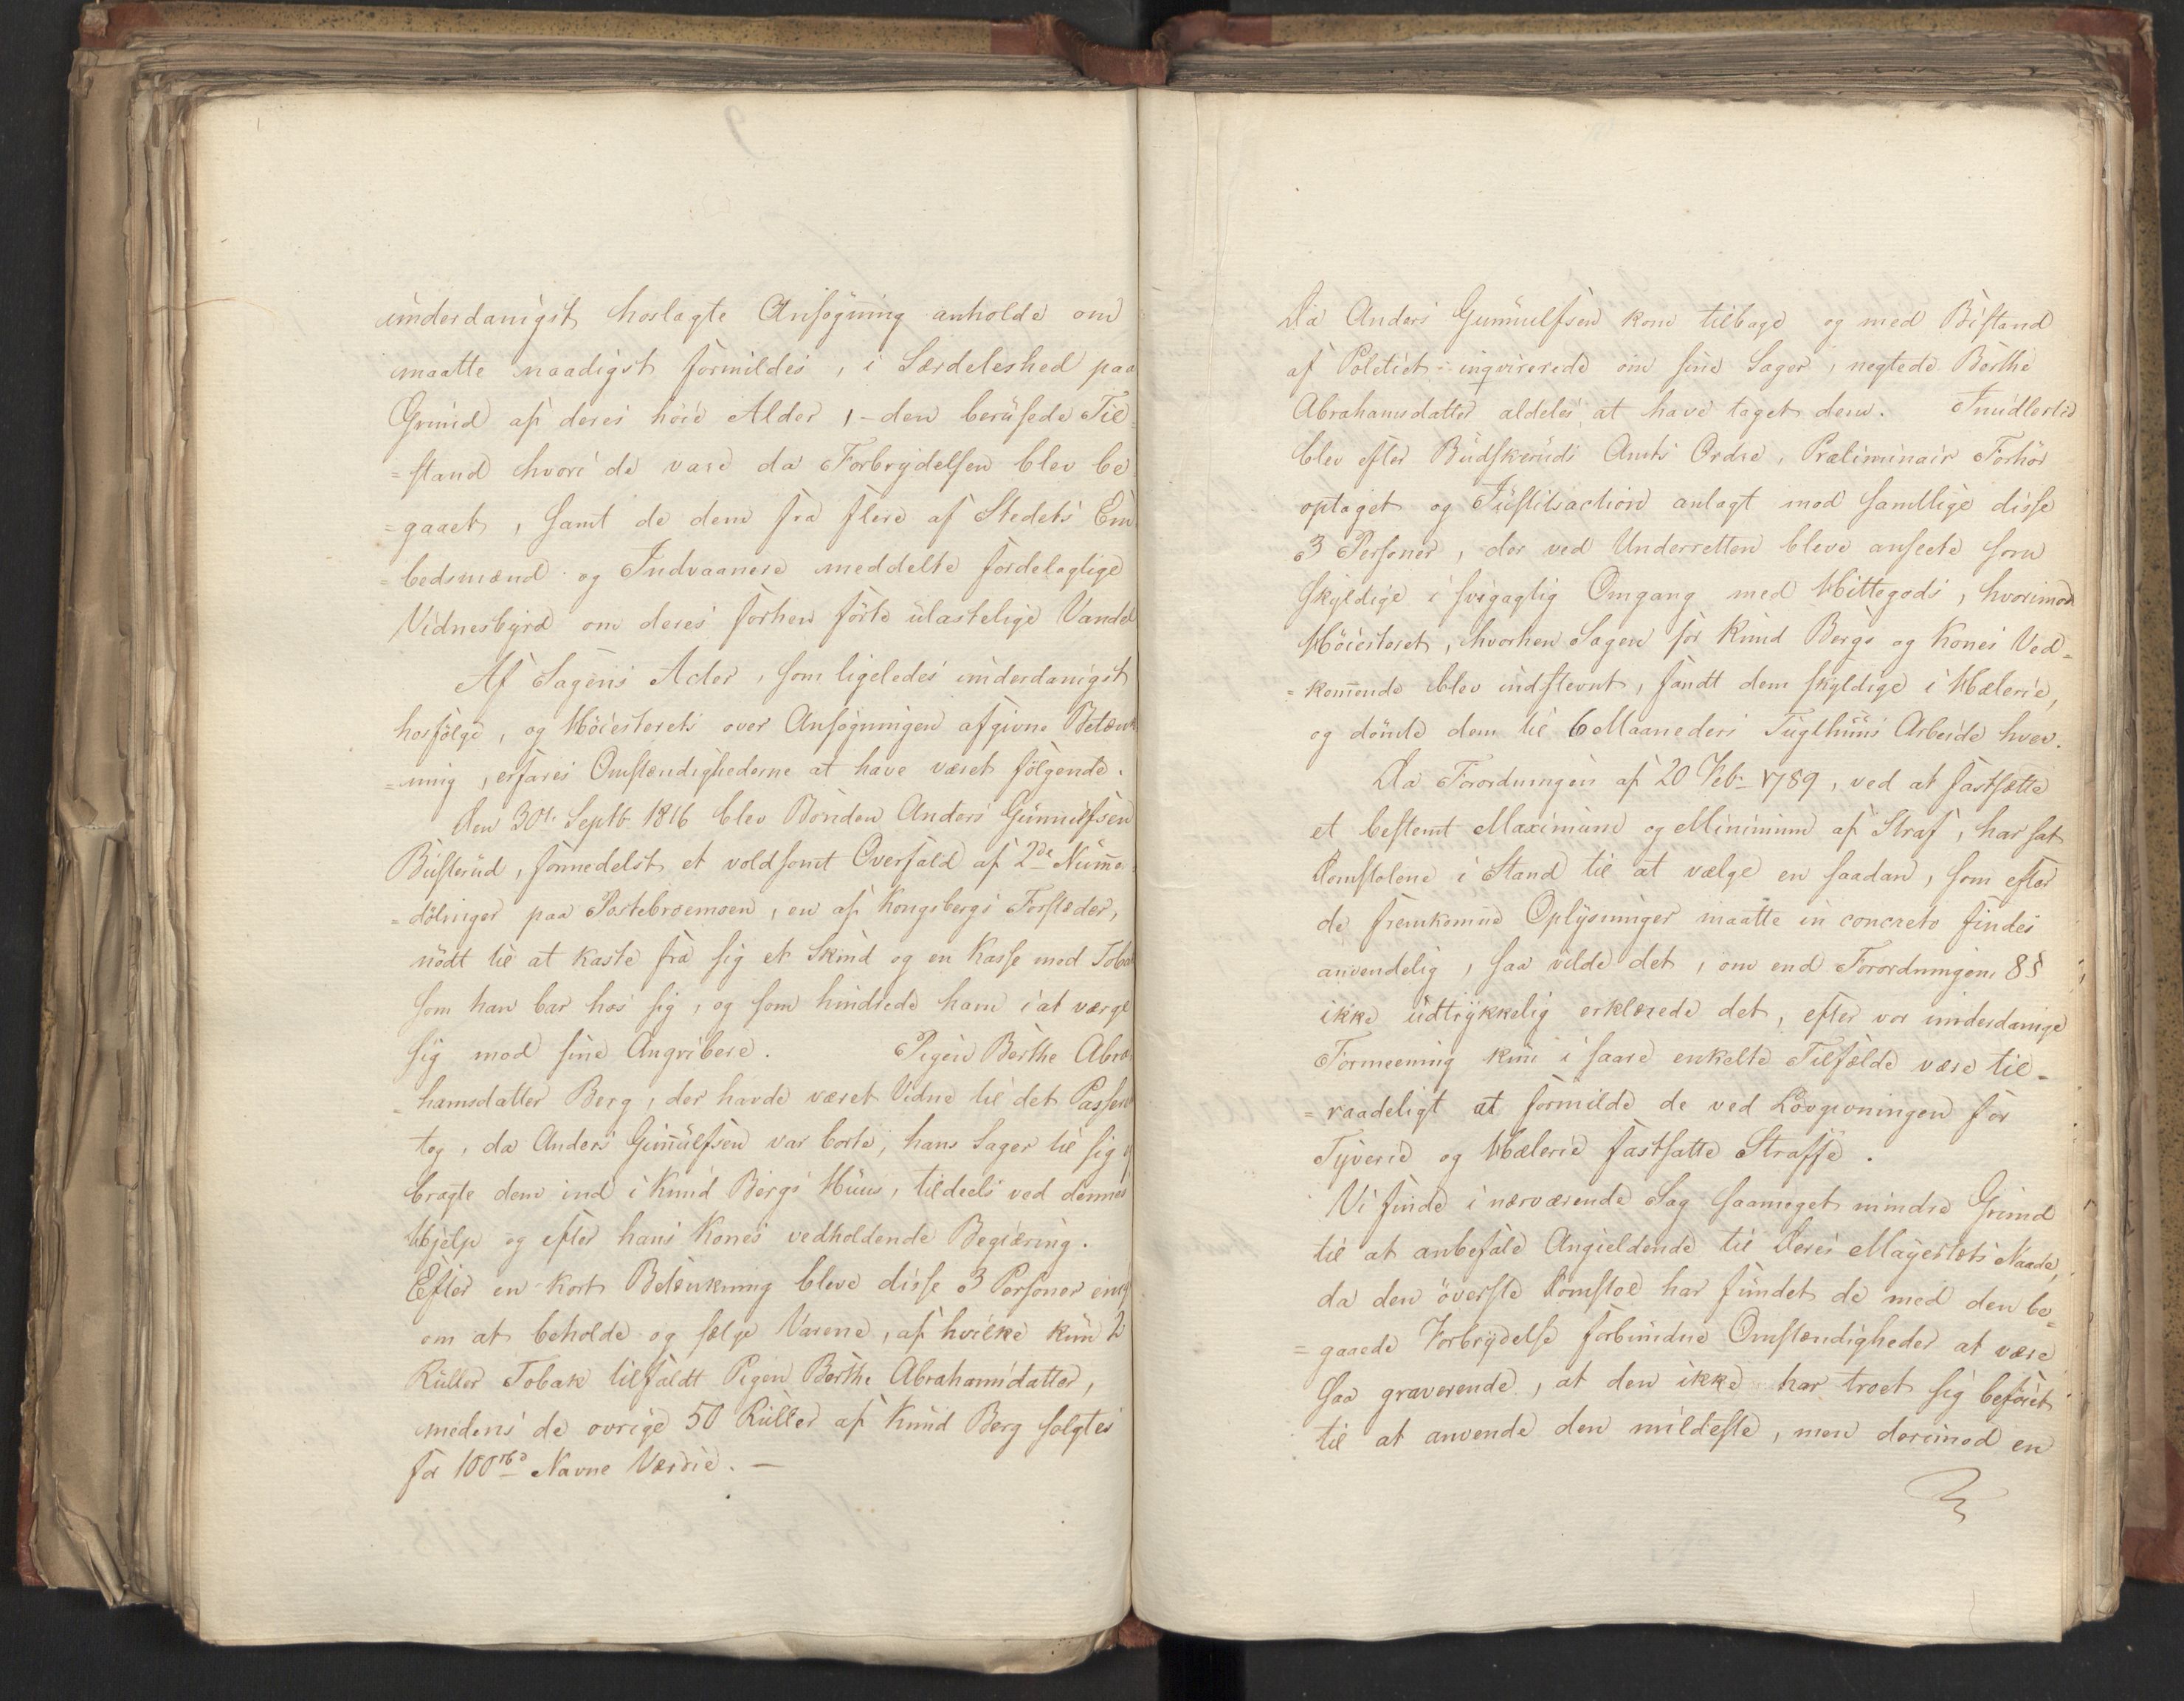 underdanigst hoslagte Ansøgning anholde om
maatte naadigst formildes, i Særdeleshed paa
Grund af deres høie Alder, – den berusede Til
=stand hvori de vare da Forbrydelsen blev be
=gaaet, samt de dem fra flere af Stedets Em
=bedsmænd og Indvaanere meddelte fordelagtige
Vidnesbyrd om deres forhen førte ulastelige Vandel
Af Sagens Acter, som ligeledes underdanigst
hosfølge, og Høiesterets over Ansøgningen afgivne Betænk
=ning, erfares Omstændighederne at have været følgende.
Den 30te Septb 1816 blev Bonden Anders Gunnulfsen
Busterud, formedelst et voldsomt Overfald af 2de Numme
=dølinger paa Portebroemoen, en af Kongsbergs Forstæder,
nødt til at kaste fra sig et Skind og en Kasse med Toba
som han bar hos sig, og som hindrede ham i at værge
sig mod sine Angribere. Pigen Berthe Abra
=hamsdatter Berg, der havde været Vidne til det Passer
tog, da Anders Gunnulfsen var borte, hans Sager til sig o
bragte dem ind i Knud Bergs Huus, tildeels ved dennes
Hjelp og efter hans Kones vedholdende Begiæring.
Efter en kort Betænkning bleve disse 3 Personer enig
om at beholde og sælge Varene, af hvilke kun 2
Ruller Tobak tilfaldt Pigen Berthe Abrahamsdatter,
medens de øvrige 50 Ruller af Knud Berg solgtes
for 100 rbd Navne Værdie. –
Da Anders Gunnulfsen kom tilbage og med Bistand
af Politiet inqvirerede om sine Sager, negtede Berthe
Abrahamsdatter aldeles at have taget dem. Imidlertid
blev efter Budskeruds Amts Ordre, Præliminair Forhør
optaget og Justitsaction anlagt mod samtlige disse
3 Personer, der ved Underretten bleve anseete som
skyldige i svigagtig Omgang med Hittegods, hvorimod
Høiesteret, hvorhen Sagen for Knud Bergs og Kones Ved=
=kommende blev indstevnt, fandt dem skyldige i Hæleri,
og dømte dem til 6 Maaneders Tugthuus Arbeide hver.
Da Forordningen af 20 Feb– 1789, ved at fastsætte
et bestemt Maximum og Minimum af Straf, har sat
Domstolene i Stand til at vælge en saadan, som efter
de fremkomne Oplysninger maatte in concreto findes
anvendelig, saa vilde det, om end Forordningens 8 §
ikke udtrykkelig erklærede det, efter vor underdanige
Formeening kun i saare enkelte Tilfælde være til=
=raadeligt at formilde de ved Lovgivningen for
Tyverie og Hælerie fastsatte Straffe.
Vi finde i nærværende Sag saameget mindre Grund
til at anbefale Angieldende til Deres Mayestæts Naade,
da den øverste Domstol har fundet de med den be=
=gaaede Forbrydelse forbundne Omstændigheder at være
saa graverende, at den ikke har troet sig beføiet
til at anvende den mildeste, men derimod en